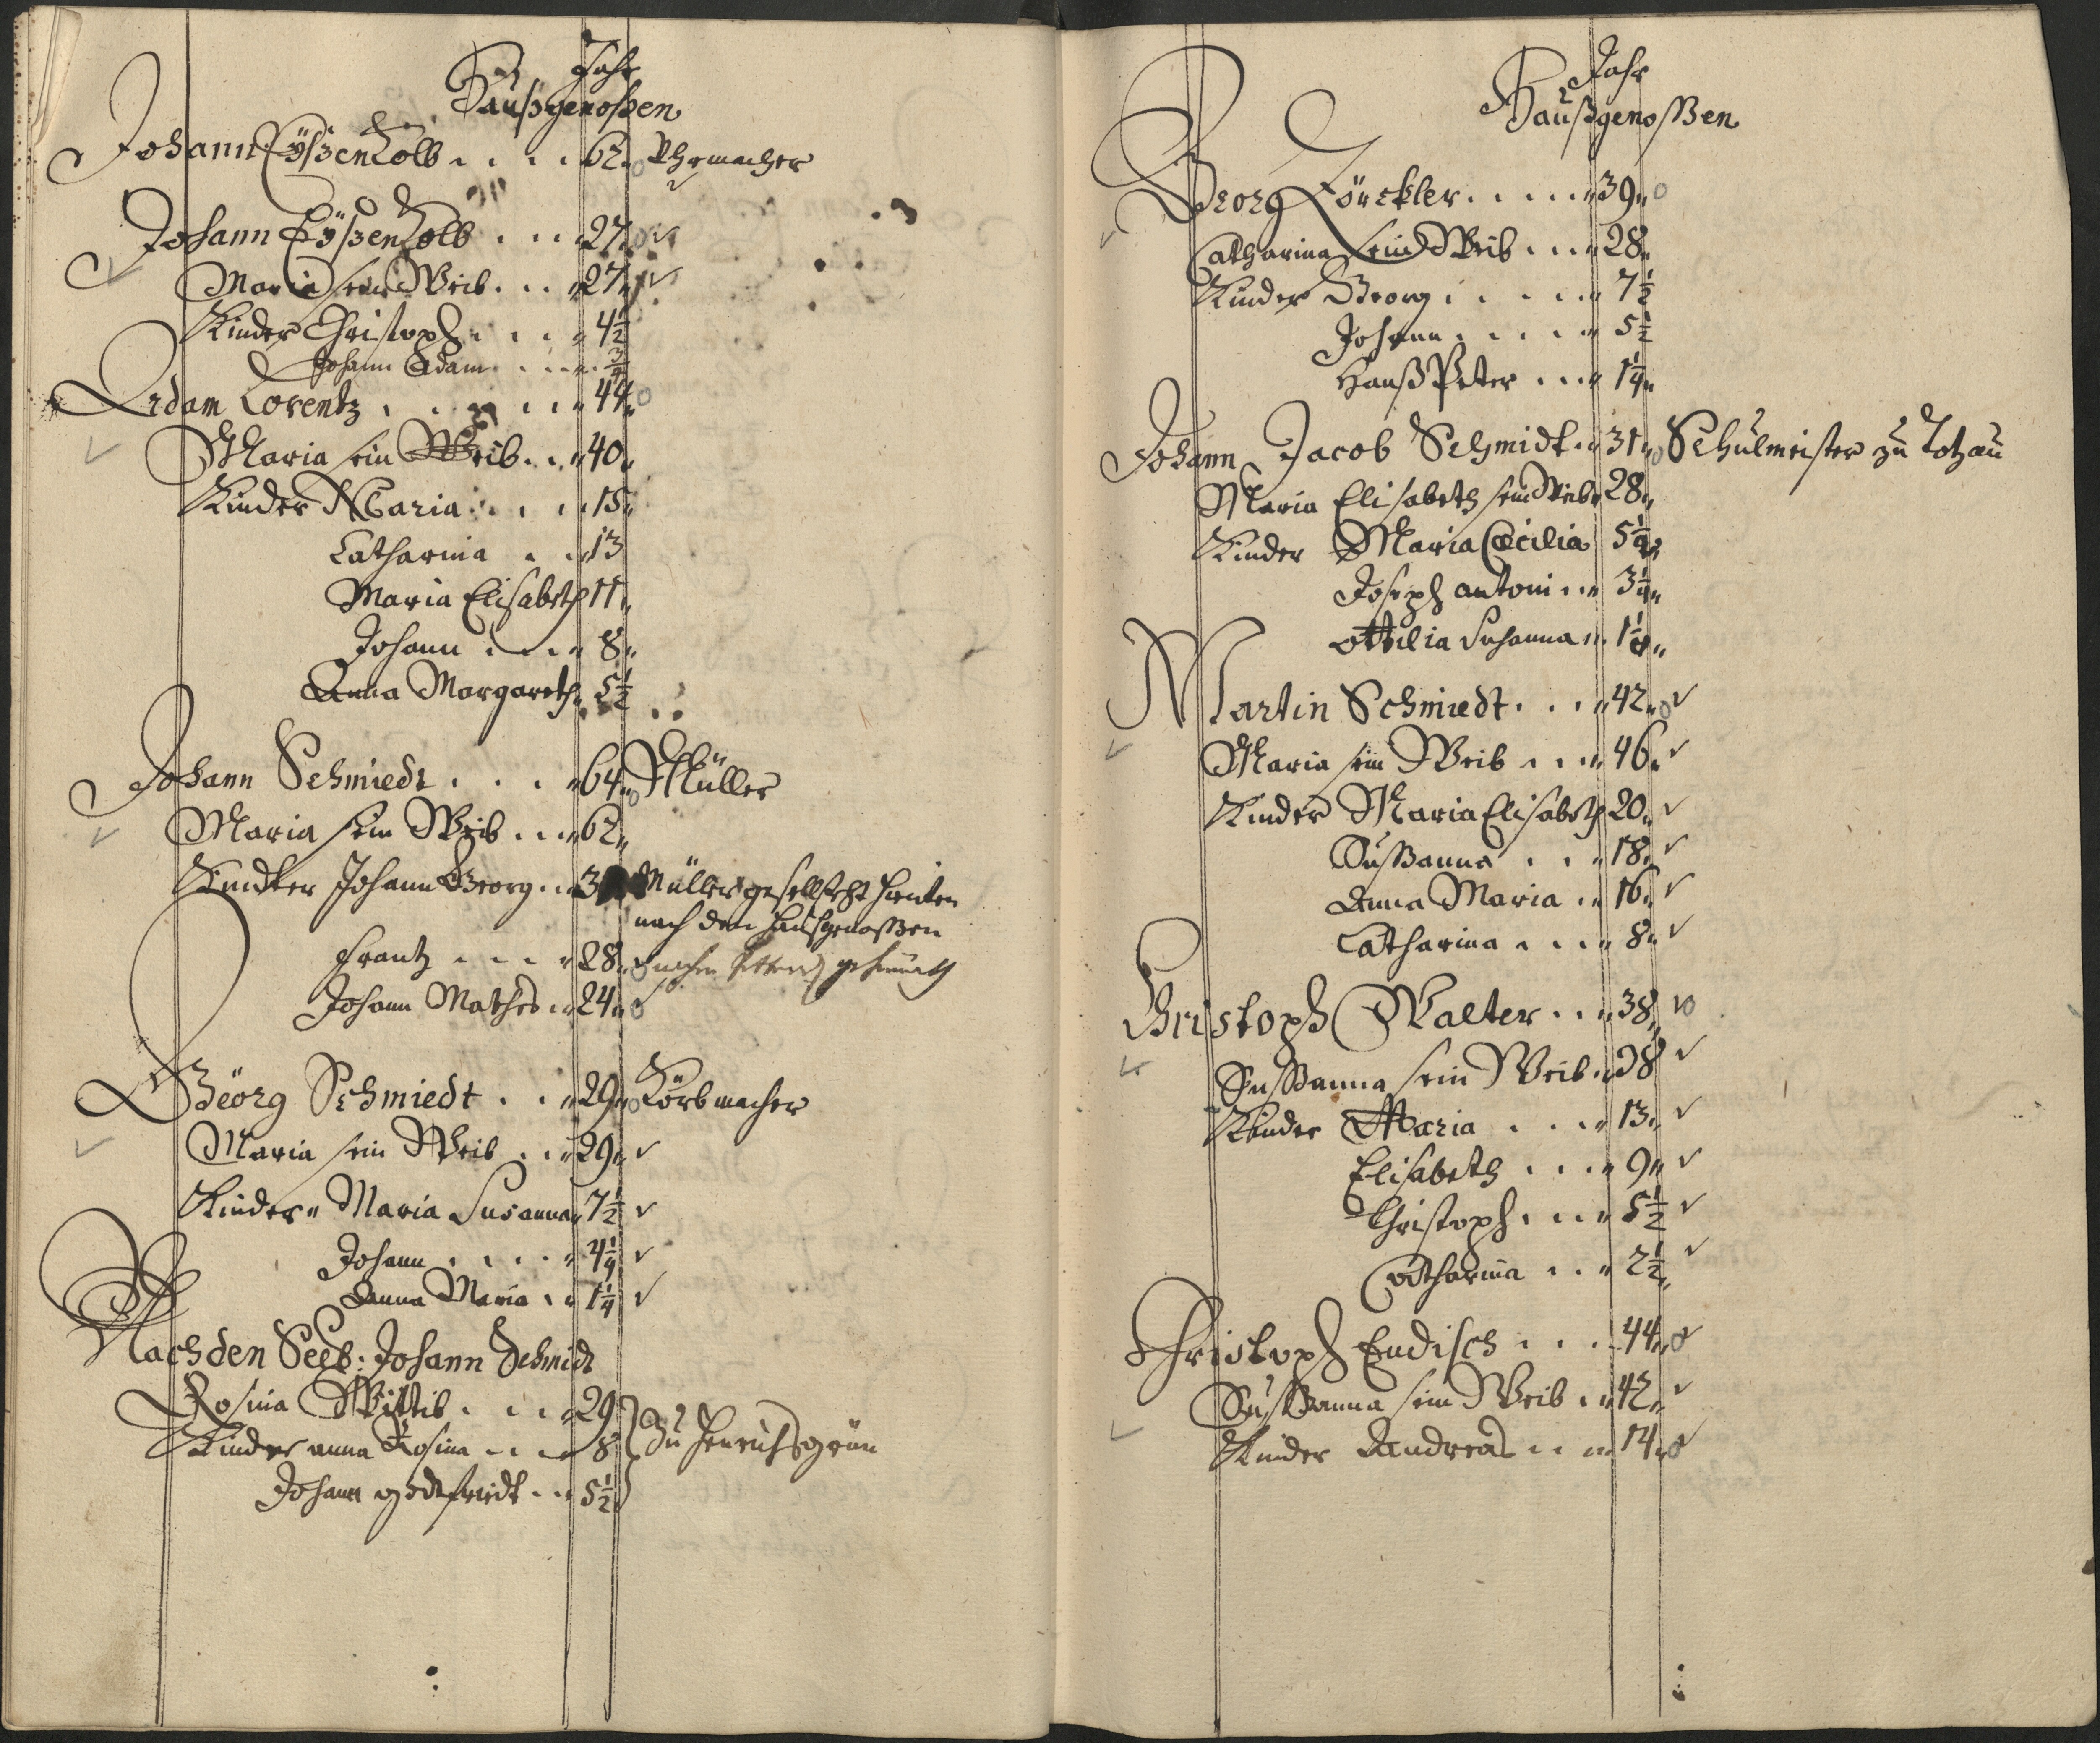 Jahr
Haußgenoßen
Johann Eÿßenkolb . . . . 62. Uhrmacher
Johann Eÿßenkolb . . . 27.
Maria sein Weib . . . 27.
Kinder Christoph . . . 4 1/2
Johann Adam . . . 3/4
Adam Lorentz . . . . . 44.
Maria sein Weib . . . 40.
Kinder Maria . . . 15.
Catharina . . . 13
Maria Elisabeth 11.
Johann . . . . 8.
Anna Margareth. 5 1/2
Johann Schmiedt . . . 64. Müller
Maria sein Weib . . . 62.
Kindter Johann Georg . . 3 Müllergesell steht hinten
nach den Haußgenoßen
Frantz . . . . 28.
Johann Mathes . . 24.
Geörg Schmiedt . . . 29. Körbmacher
Maria sein Weib . . . 29.
Kinder. Maria Susanna. 7 1/2
Johann . . . . . 4 1/4
Anna Maria . . 1 1/4
Nach den Seel: Johann Schmidt
Rosina Wittib . . . . 29
Kinder anna Rosina . . . 8 Zu Henrichsgrün
Johann godtfriedt . . . 5 1/2
Jahr
Haußgenoßen
Georg Zörckler . . . . . 39.
Catharina sein Weib . . . 28.
Kinder Georg . . . . . 7 1/2
Johann . . . . . 5 1/2
Hanß Peter . . . 1 1/4.
Johann Jacob Schmidt . . 31. Schulmeister zu Totzau
Maria Elisabeth sein Weib. 28.
Kinder Maria Cæcilia 5 1/4.
Joseph antoni . . . 3 1/4.
ottilia Susanna . . 1 1/4.
Martin Schmiedt . . . 42.
Maria sein Weib . . . 46.
Kinder Maria Elisabeth 20.
Sußanna . . . 18.
Anna Maria . . 16.
Catharina . . . . 8.
Christoph Walter . . . 38.
Sußanna sein Weib . . 38
Kinder Maria . . . 13.
Elisabeth . . . . 9.
Christoph . . . . 5 1/2
Catharina . . . 2 1/2.
Christoph Endisch . . . 44.
Sußanna sein Weib . . 42.
Kinder Andreas . . . 14.